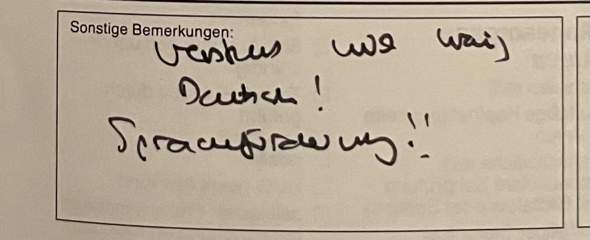 Sonstige Bemerkungen:
versteht nur wenig
Deutsch!
Sprachförderung!!